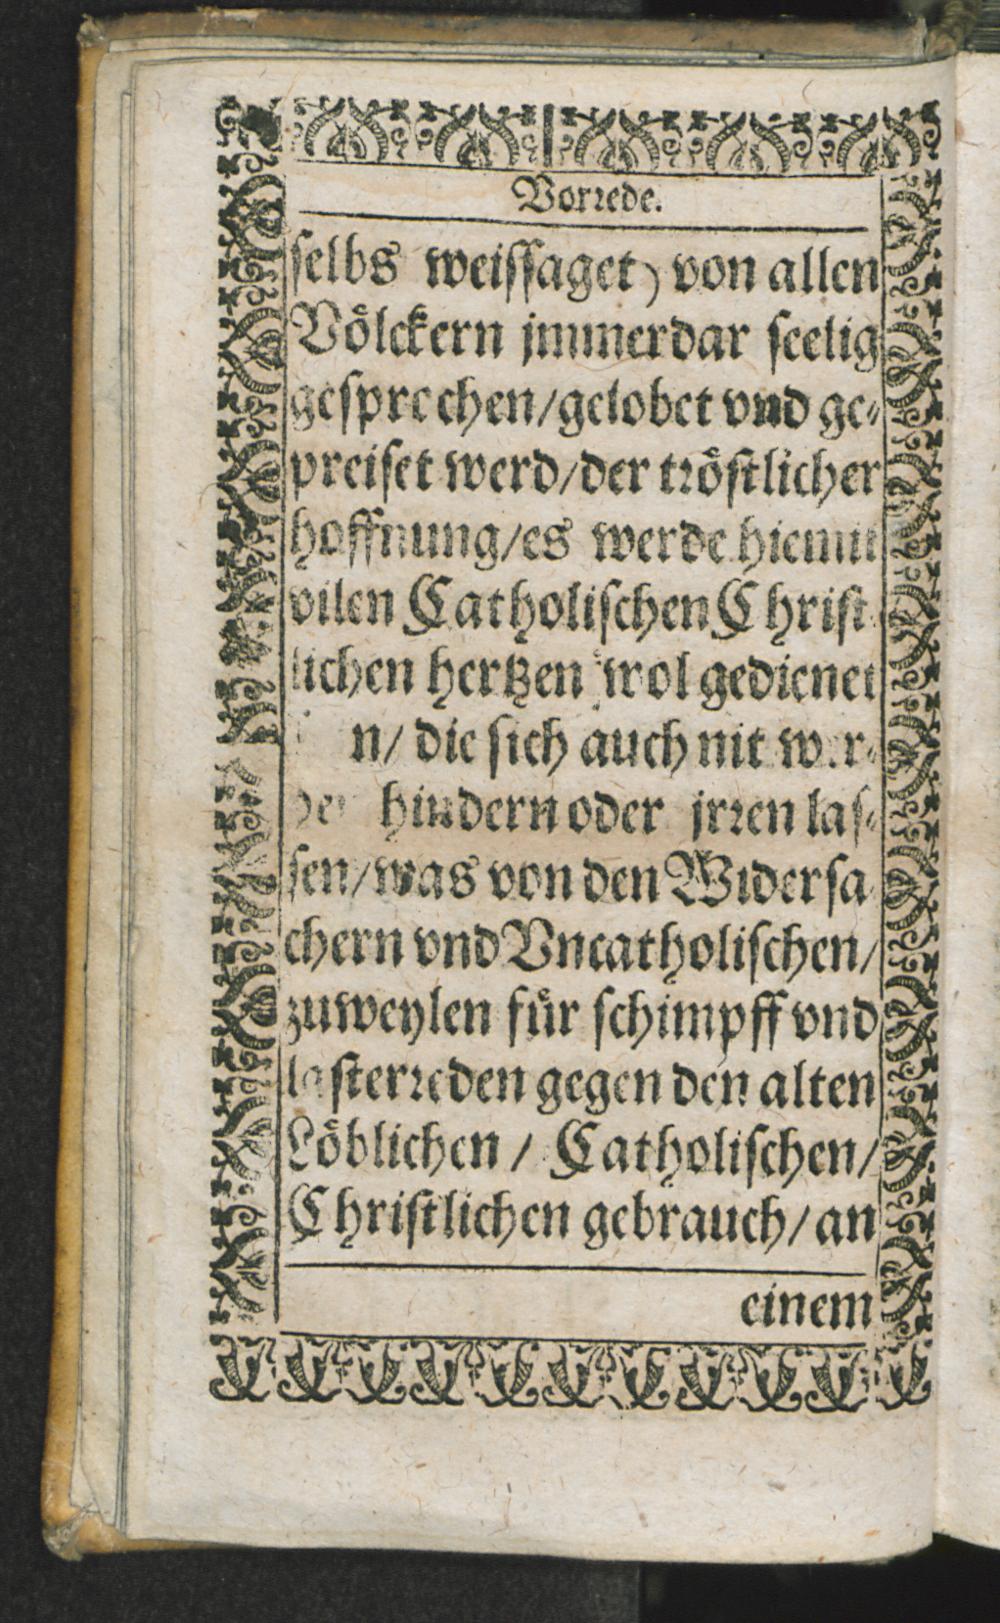 Vorꝛede.
ſelbs weiſſaget) von allen
Völckern jmmerdar ſeelig
geſprochen/gelobet vnd ge⸗
preiſet werd/der tꝛöſtlicher
hoffnung/es werde hiemit
vilen Catholiſchen Chriſt⸗
lichen hertzen wol gedienet
die ſich auch nit wer⸗
hindern oder jrꝛen laſ⸗
ſen/was von den Widerſa
chern vnd Vncatholiſchen/
zuweylen für ſchimpff vnd
laſterꝛeden gegen den alten
Löblichen / Catholiſchen/
Chriſtlichen gebrauch/an
einem